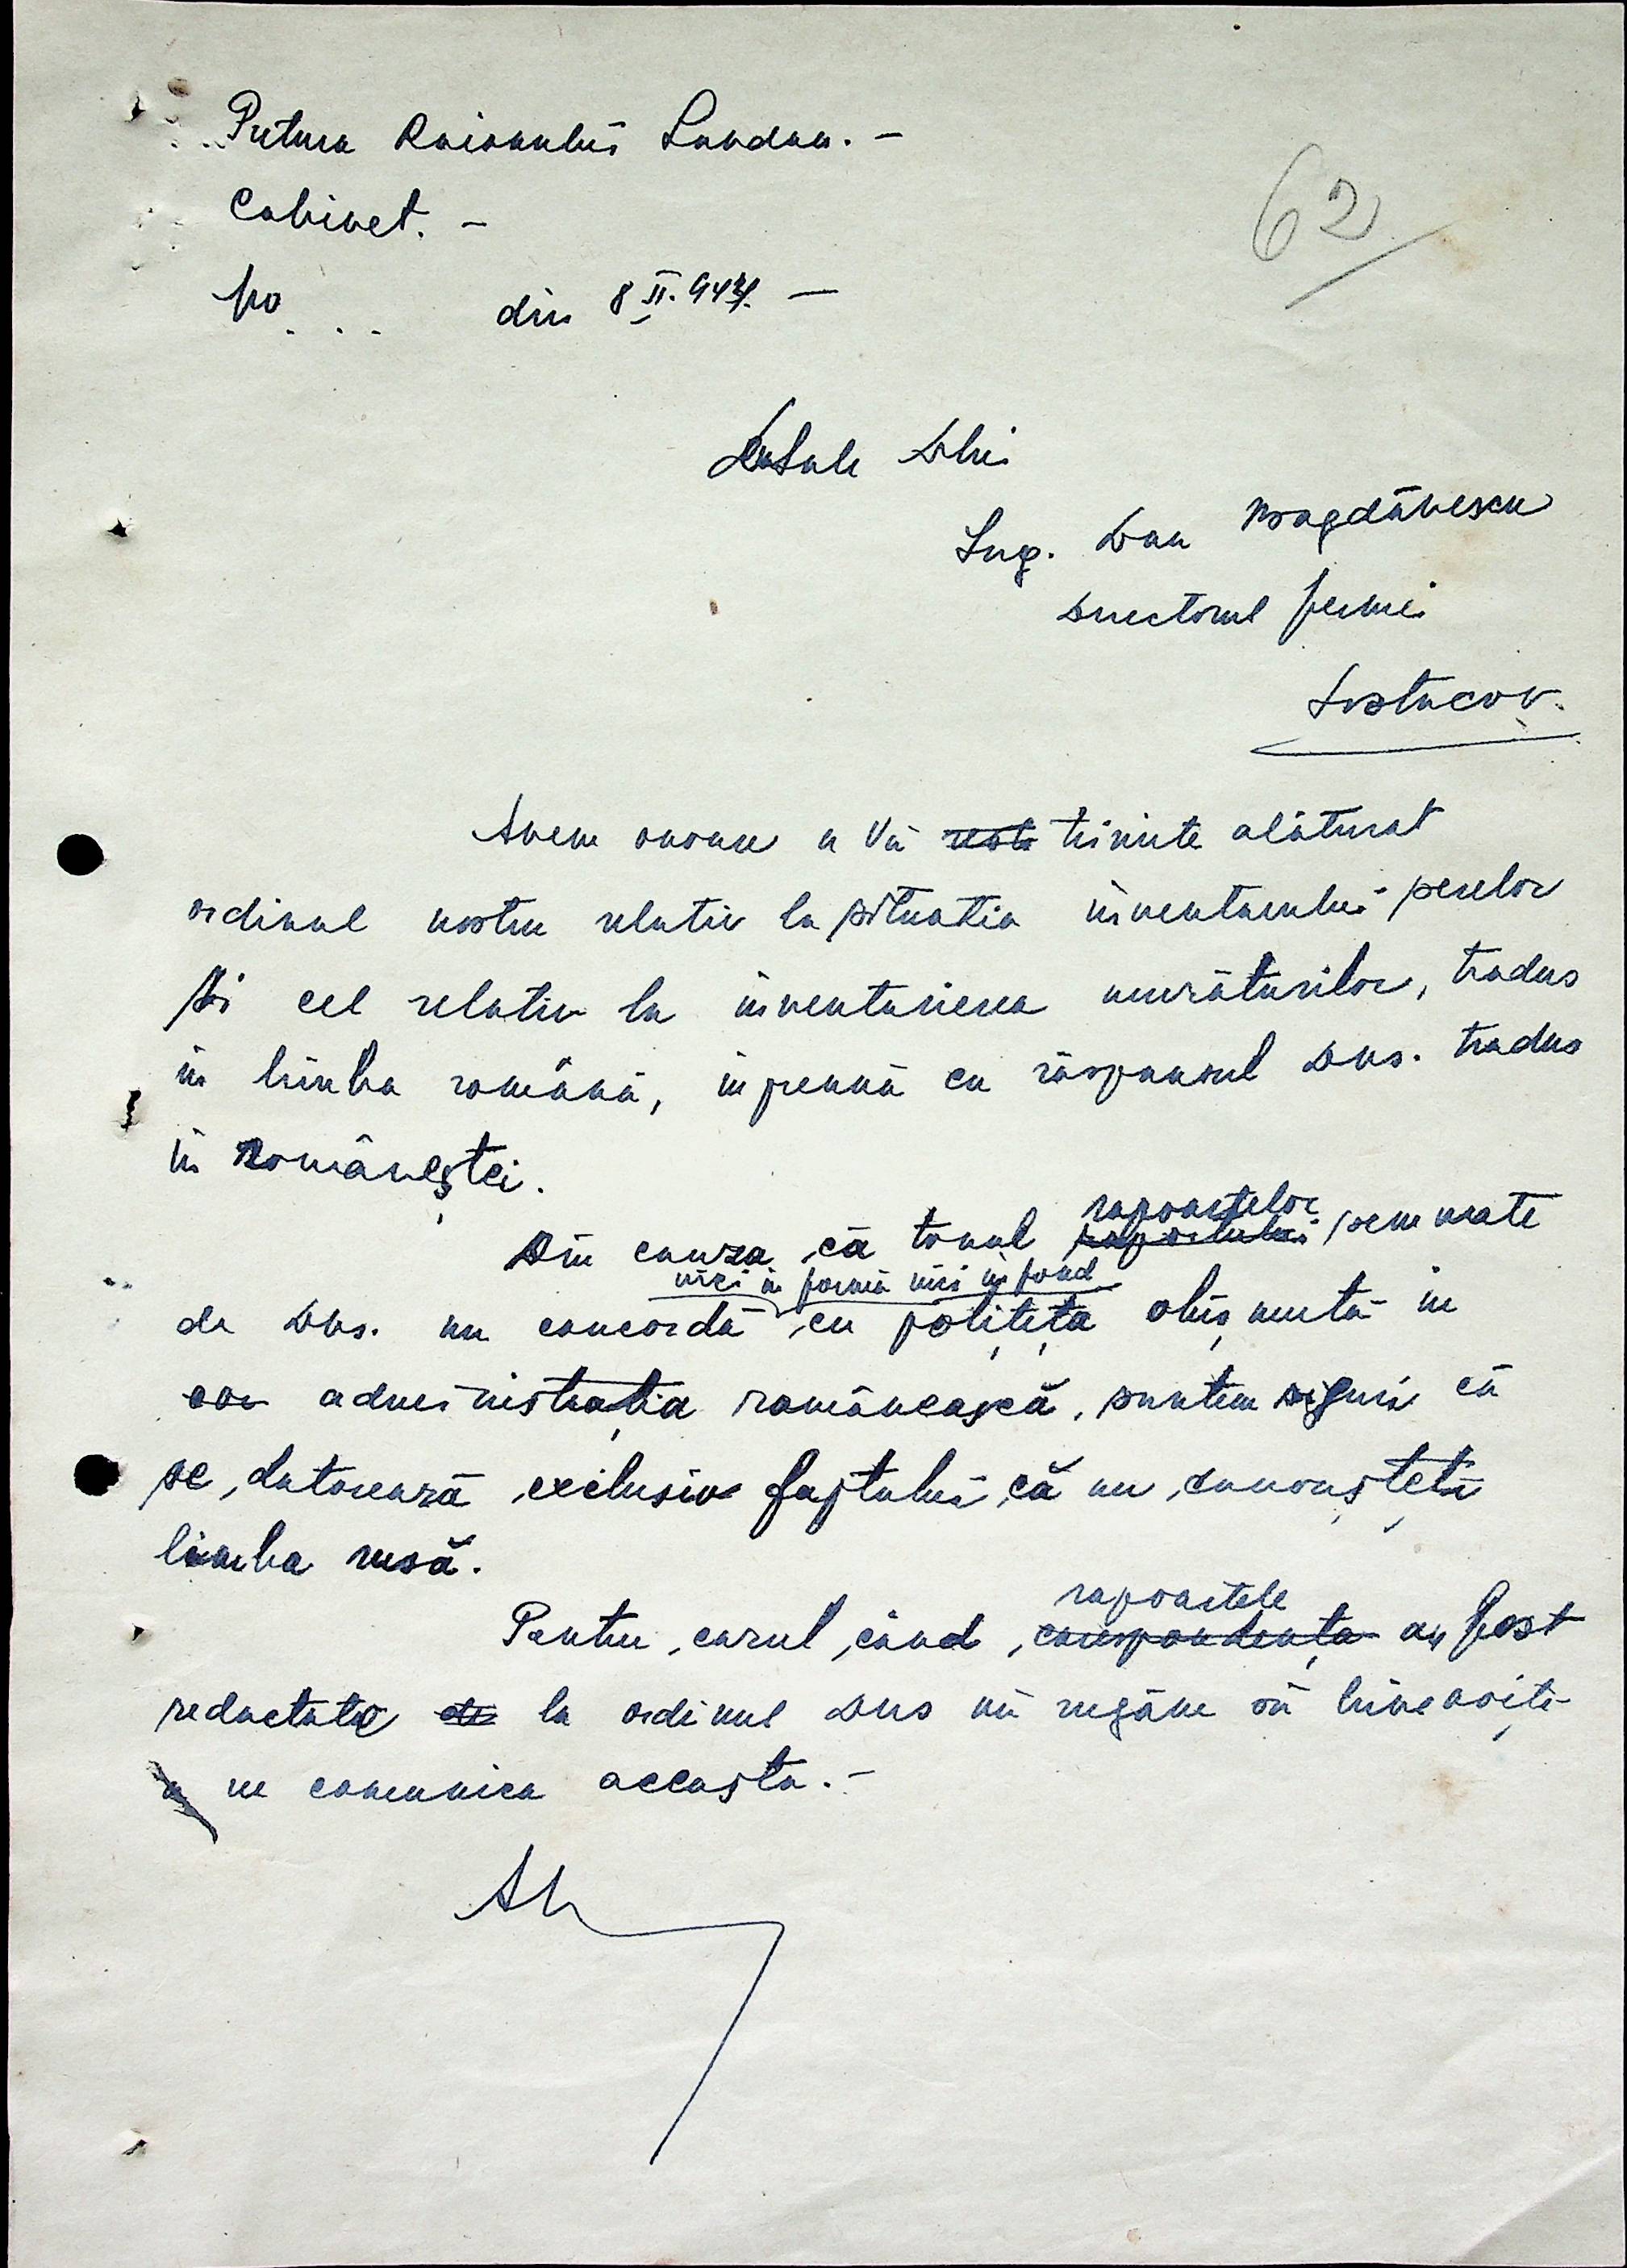 Pretura Raionului Landau. -
Cabinet. -
62
No . . . din 8 II. 944. -
Dsale Dlui
Ing. Dan Magdănescu
Directorul fermei
Sostacov.
Avem onoare a Vă resti trimite alăturat
ordinul nostru relativ la situatia inventarului perelor
si cel relativ la inventarierea murăturilor, tradus
în limba română, inpreună cu răspunsul Dvs. tradus
in Româneștei.
rapoartelor
Din cauza că tonul raportului semnate
nici in formă nici in fond
de Dvs. nu concordă cu politeța obișnuită in
administrația românească, suntem siguri că
se datorează exclusiv faptului că nu cunoașteți
limba rusă.
rapoartele
Pentru cazul când corespondența au fost
redactate de la ordinul Dvs vă rugăm să binevoiți
a ne comunica aceasta. -